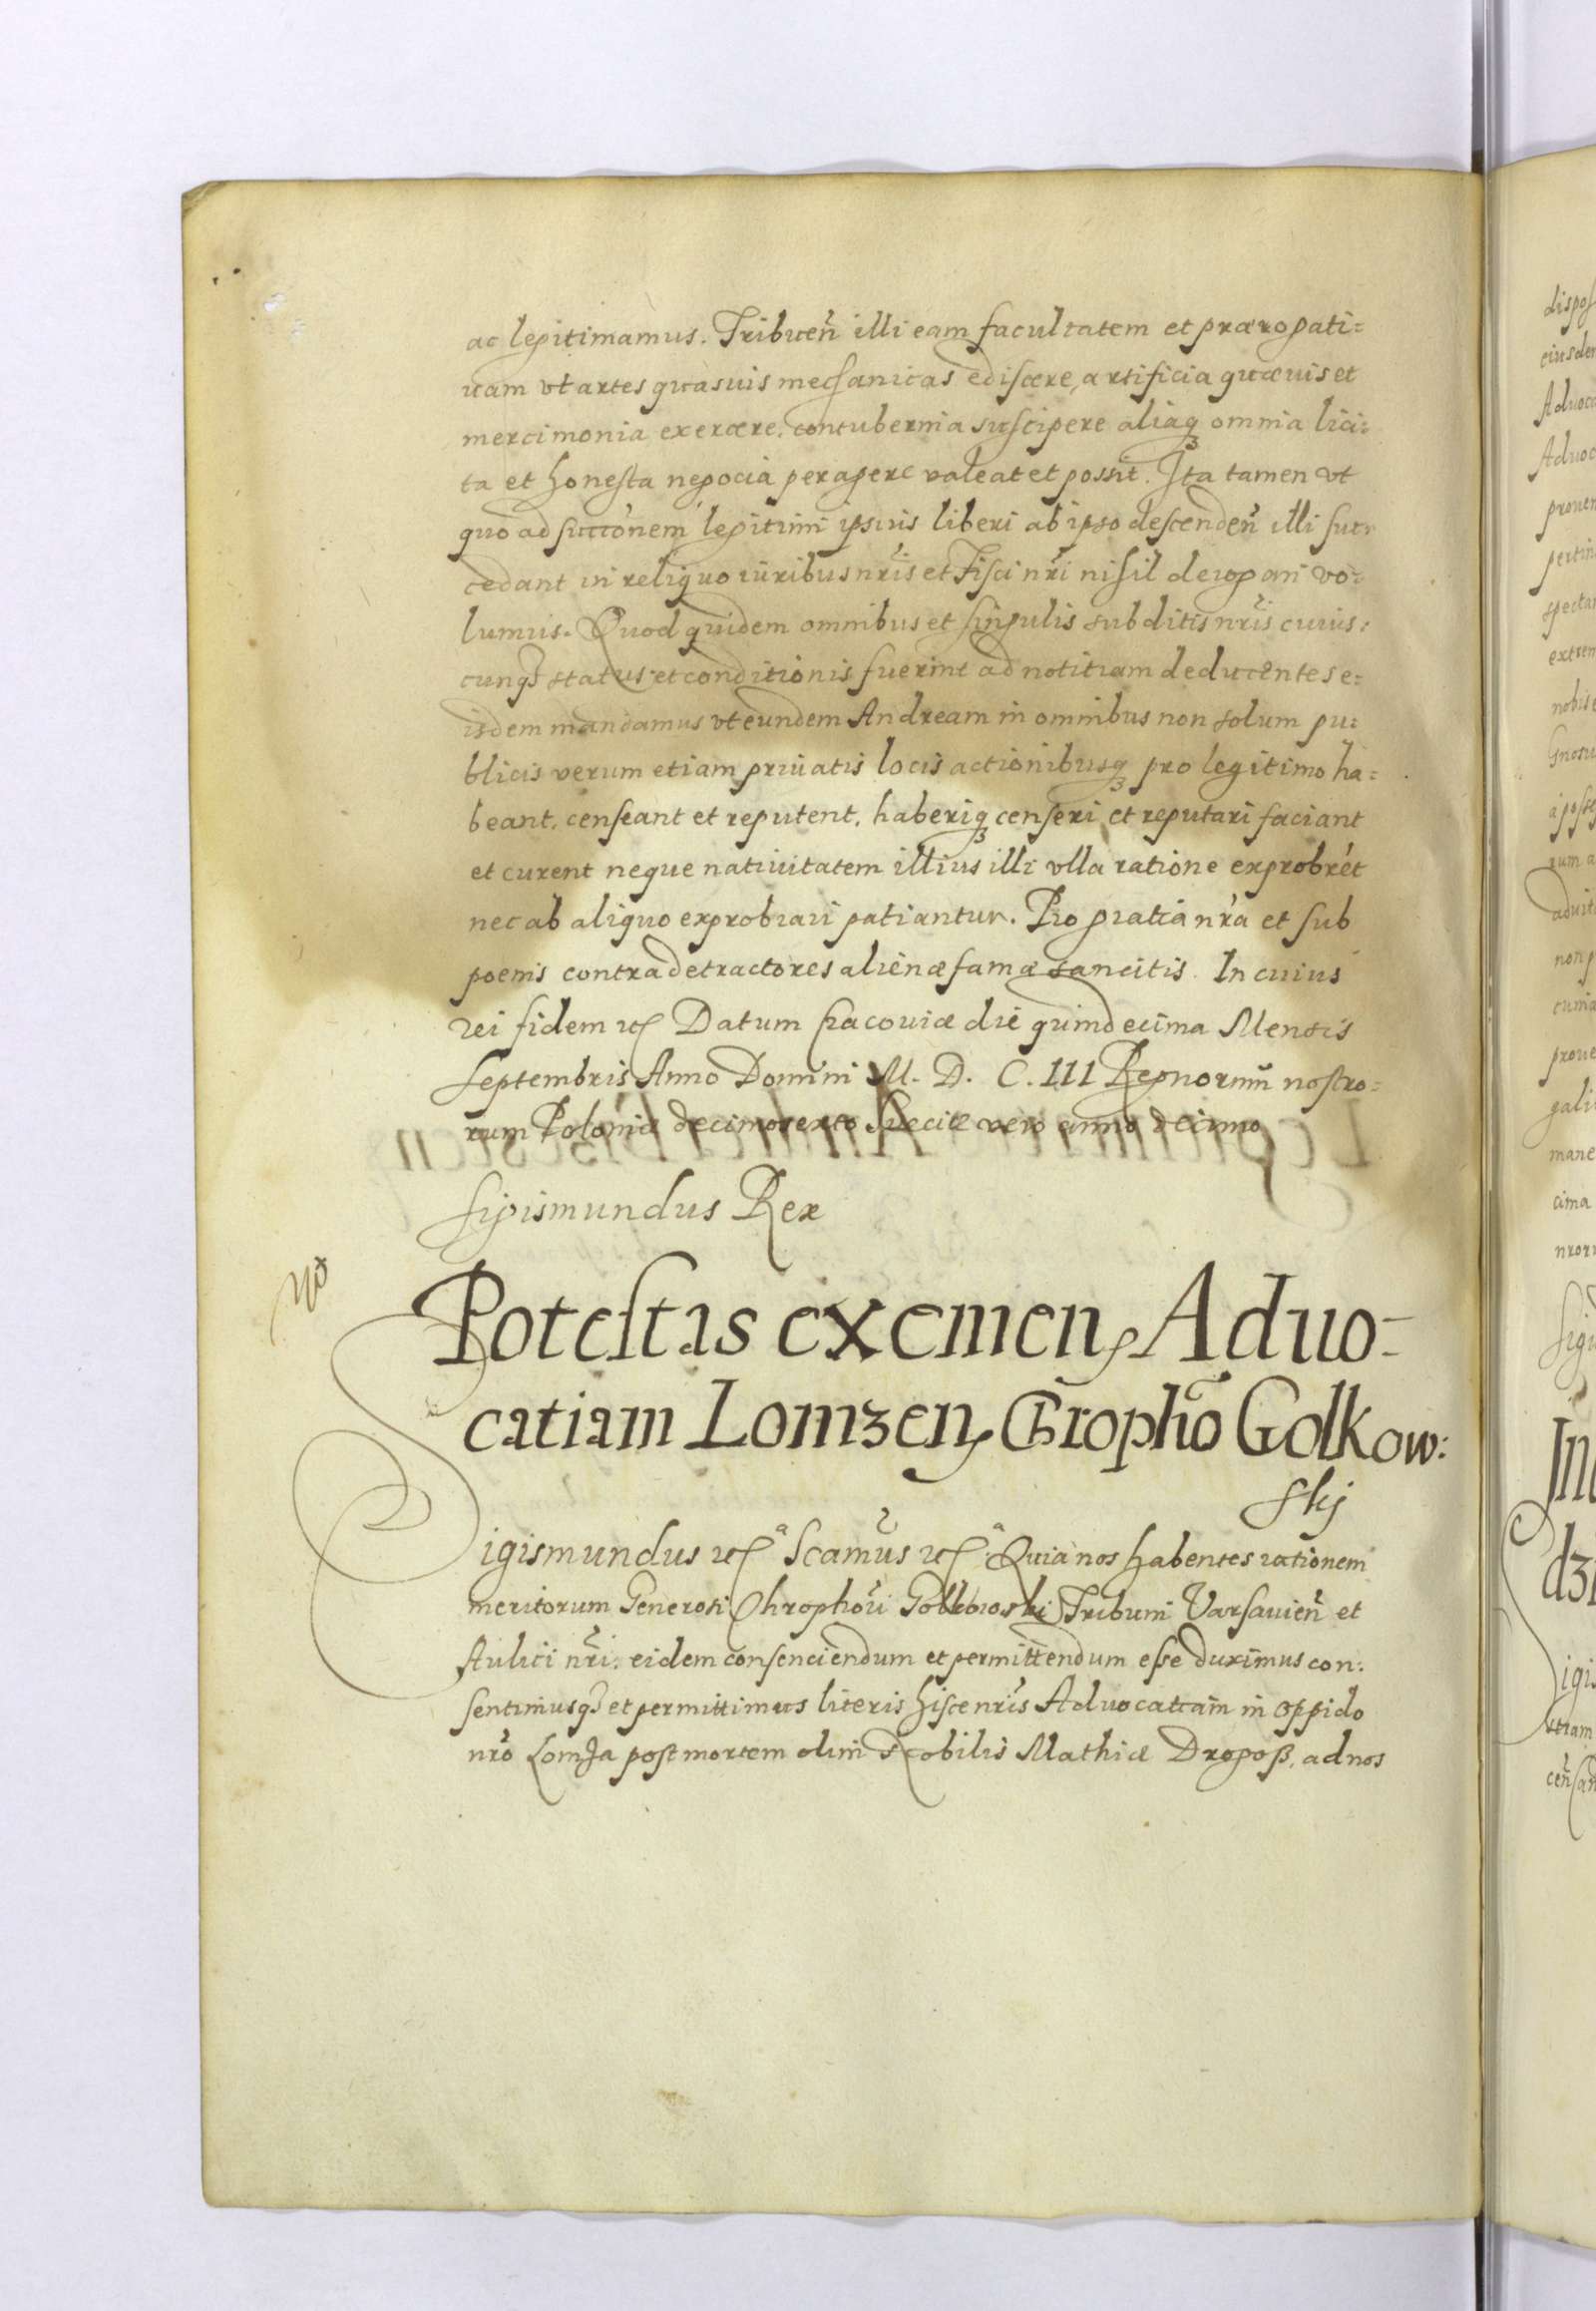 ac legitimamus. Tribuen̄ illi eam facultatem et prærogati=
uam vt artes quasuis mechanicas ediscere, artificia quæuis et
mercimonia exercere, contubernia suscipere aliaq₃ omnia lici=
ta et honesta negocia peragere valeat et possit. Ita tamen vt
quo ad succ̄onem legitimi ipsius liberi ab ipso descenden̄ illi suc
cedant in reliquo iuribus nr̄is et Fisci nr̄i nihil derogari vo=
lumus. Quod quidem omnibus et singulis subditis nr̄is cuius=
cunq₃ status et conditionis fuerint ad notitiam deducentes e=
isdem mandamus vt eundem Andream in omnibus non solum pu=
blicis verum etiam priuatis locis actionibusq₃ pro legitimo ha=
beant, censeant et reputent, haberiq₃ censeri et reputari faciant
et curent neque natiuitatem illius illi vlla ratione exprobrēt
nec ab aliquo exprobrari patiantur. Pro gratia nr̄a et sub
poenis contra detractores alienæ famæ sancitis. In cuius
rei fidem etc Datum Cracouiæ die quindecima Mensis
Septembris Anno Domini M. D. C. III Regnorum nostro=
rum Poloniæ decimosexto Sueciæ vero anno decimo
Sigismundus Rex
Potestas exemen, Aduo-
catiam Lomzen, Chrophō Golkow:
skj
Sigismundus etc Scamūs etc Quia nos habentes rationem
meritorum Generosi Chrophori Tribuni Varsauien̄ et
Aulici nr̄i. eidem consenciendum et permittendum esse duximus con:
sentimusq₃ et permittimus literis hisce nr̄is Aduocatiam in oppido
nr̄o Lomza post mortem olim Nobilis Mathiæ ad nos